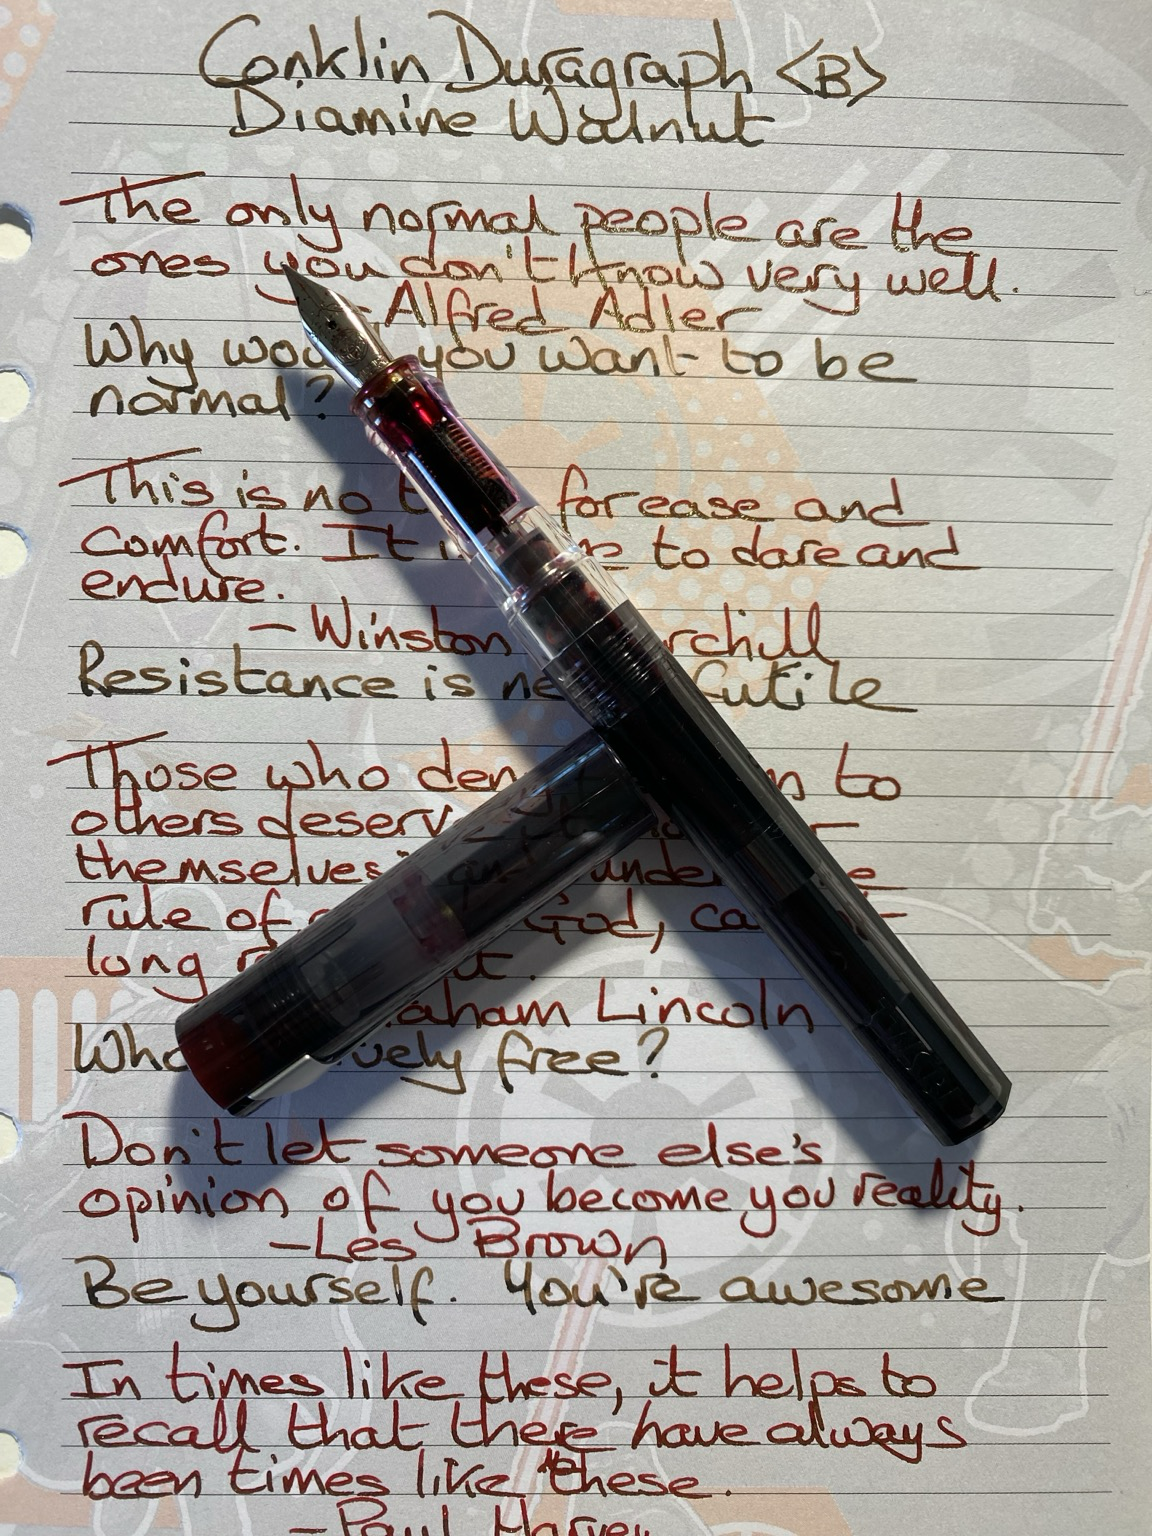 Conklin Duragraph <B>
Diamine Walnut
The only normal people are the
ones you don't know very well.
- Alfred Adler
Why you want to be
normal?
This is no for ease and
comfort. It to dare and
endure.
- Winston
Resistance is futile
Those who to
others
themselves
rule of God,
long
Lincoln
free?
Don't let someone else's
opinion of you become you reality.
- Les Brown
Be yourself. You're awesome
In times like these, it helps to
recall that there have always
been times like these.
- Paul Harvey